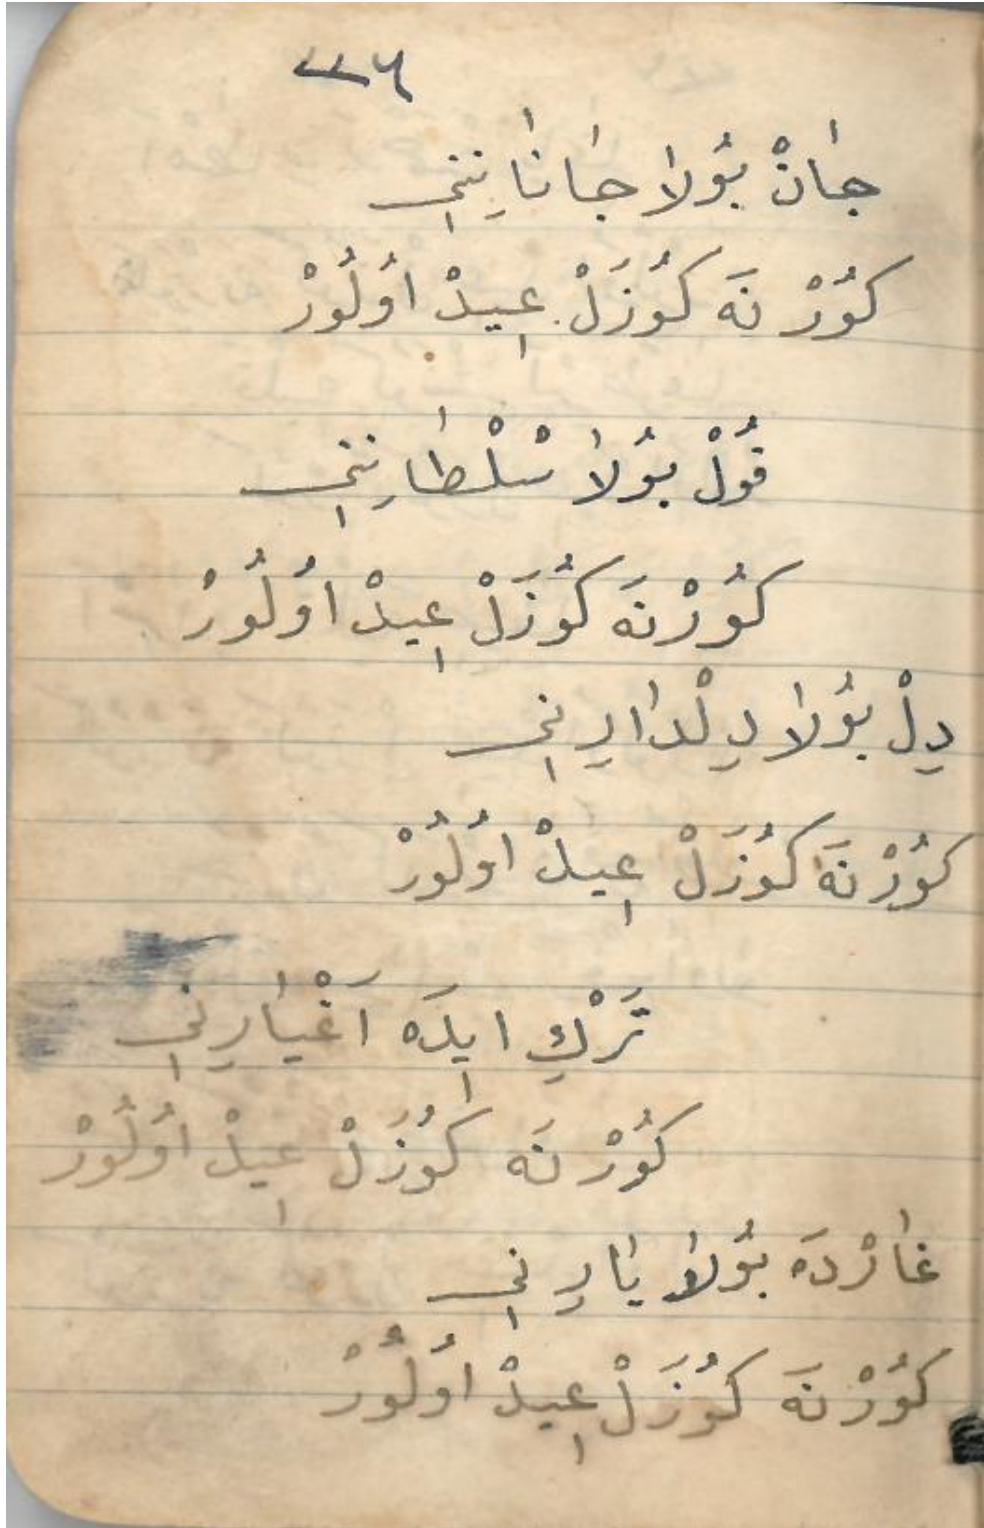 جٰانْ بُولٰا جٰانٰانِنٖي
كُورْ نَه كُوزَلْ عٖيدْ اُولُورْ
قُولْ بُولٰا سُلْطٰانِنٖي
كُورْ نَه كُوزَلْ عٖيدْ اُولُورْ
دِلْ بُولٰا دِلْدٰارِنٖي
كُورْ نَه كُوزَلْ عٖيدْ اُولُورْ
تَرْكِ اٖيدَه اَغْيٰارِنٖي
كُورْ نَه كُوزَلْ عٖيدْ اُولُورْ
غٰارْدَه بُولٰا يٰارِنٖي
كُورْ نَه كُوزَلْ عٖيدْ اُولُورْ